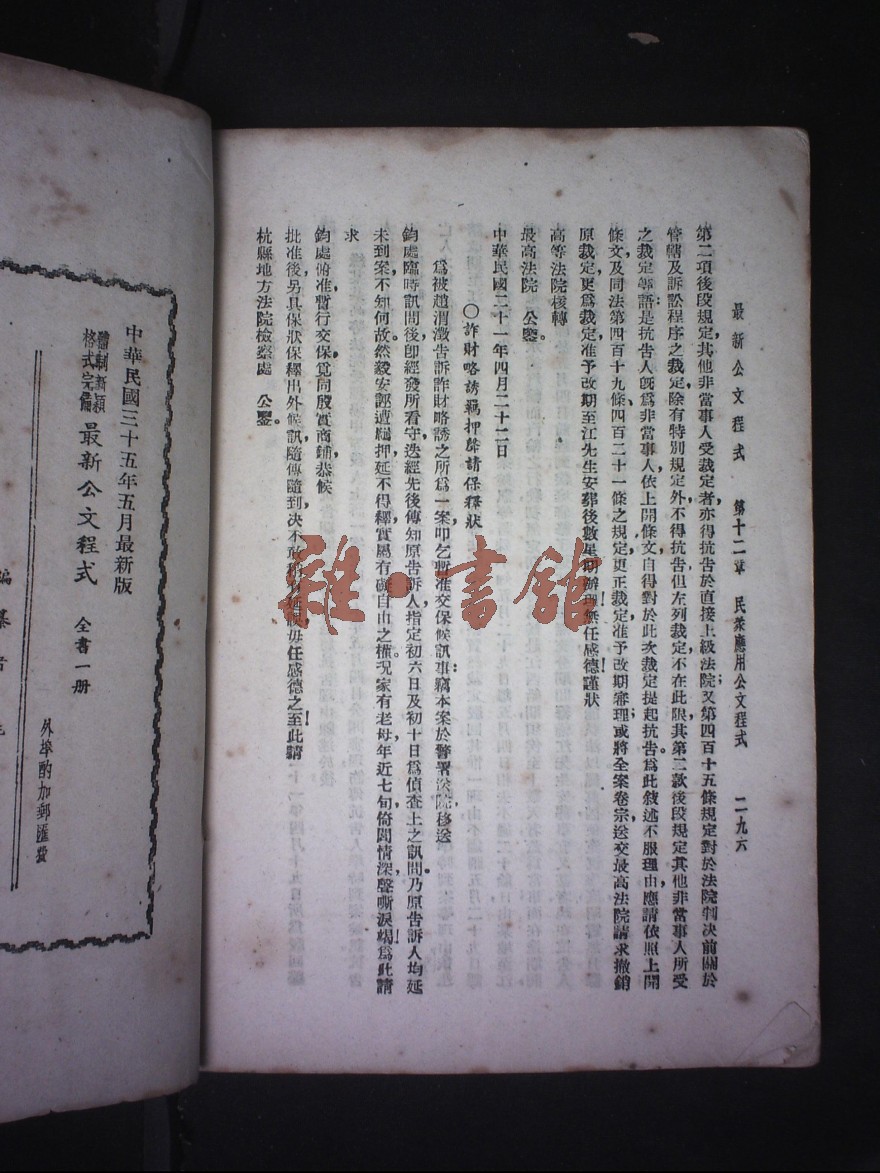 最新公文程式　第十二章　民眾應用公文程式　二九六
第二項後段規定，其他非當事人受裁定者亦得抗告於直接上級法院；又第四百十五條規定對於法院判決前關於
管轄及訴訟程序之裁定，除有特別規定外，不得抗告，但左列裁定，不在此限，其第二款後段規定其他非當事人所受
之裁定等語；是抗告人既爲非當事人，依上開條文，自得對於此次裁定提起抗告。爲此敘述不服理由，應請依照上開
條文，及同法第四百十九條、四百二十一條之規定，更正裁定，准予改期審理；或將全案卷宗，送交最高法院，請求撤銷
原裁定，更爲裁定，准予改期至江先生安葬後數星期辦理，無任感德！謹狀
高等法院核轉
最高法院　公鑒。
中華民國二十一年四月二十二日
○詐財略誘羈押聲請保釋狀
爲被趙渭澂告訴詐財略誘之所爲一案，叩乞暫准交保候訊事：竊本案於警署送院移送
鈞處臨時訊問後，卽經發所看守，迭經先後傳知原告訴人，指定初六日及初十日爲偵查上之訊問，乃原告訴人均延
未到案，不知何故。然毅安誣遭羈押，延不得釋，實屬有礙自由之權。況家有老母，年近七旬，倚閭情深，聲嘶淚竭！爲此請
求
鈞處俯准暫行交保，覓同殷實商鋪，恭候
批准後，另具保狀，保釋出外候訊，隨傳隨到，決不敢稍有延誤，毋任感德之至！此請
杭縣地方法院檢察處　公鑒。
中華民國三十五年五月最新版
體制新穎
格式完備
最新公文程式　全書一册
外埠酌加郵匯費
編纂者
雜·書館